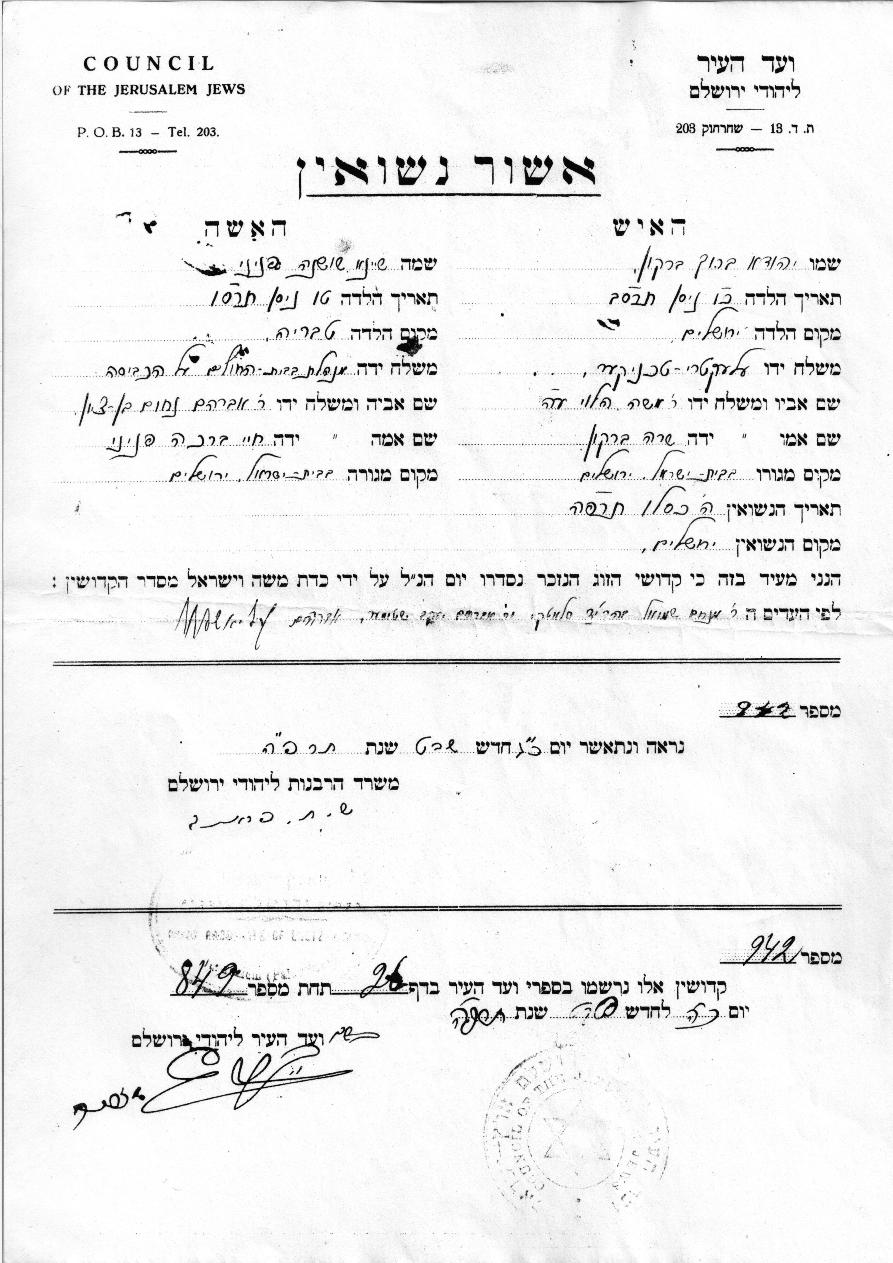 COUNCIL
OF THE JERUSALEM JEWS
P. O. B. 13 — Tel. 203.
ועד העיר
ליהודי ירושלם
ת. ד. 13 — שחרחוק 203
אשור נשואין
האיש
שמו יהודא ברוך ברקון,
תאריך הלדה כ"ו ניסן תרסב
מקום הלדה ירושלים,
משלח ידו עלעקטרי-טכניקער,
שם אביו ומשלח ידו ר' משה הלוי ע"ה
שם אמו " ידה שרה ברקון,
מקום מגורו בבית-ישראל, ירושלים
תאריך הנשואין ה' כסלו תרפה
מקום הנשואין ירושלים,
האשה
שמה שיינא שושנה פניני
תאריך הלדה טו ניסן תרסו
מקום הלדה טבריה,
משלח ידה מנהלת בבית-החולים על הכביסה
שם אביה ומשלח ידו ר' אברהם נחום בן-ציון,
שם אמה " ידה חיי ברכה פניני
מקום מגורה בבית-ישראל, ירושלים
הנני מעיד בזה כי קדושי הזוג הנזכר נסדרו יום הנ"ל על ידי כדת משה וישראל מסדר הקדושין :
לפי העדים ה ר' מנחם שמואל אברהם יעקב
מספר
נראה ונתאשר יום כ"ג חדש שבט שנת תרפ"ה
משרד הרבנות ליהודי ירושלם
מספר 942
קדושין אלו נרשמו בספרי ועד העיר בדף 26 תחת מספר 849
יום כ"ה לחדש שבט שנת תרפ"ה
בשם ועד העיר ליהודי ירושלם
COUNCIL OF THE